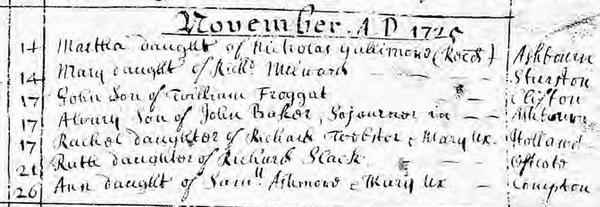 November A D 1725
14 Martha daught of Nicholas (Reeds) Ashbourn
14 Mary daught of Richd. Milward Sturston
17 John Son of William Froggat Clifton
17 Son of John Baker, Sojourner in Ashbourn
17 Rachel daughter of Richard Webster & Mary Ux. Holland
21 Ruth daughter of Richard Slack. Offcote
26 Ann daught of Samll Ashmord & Mary Ux Compton